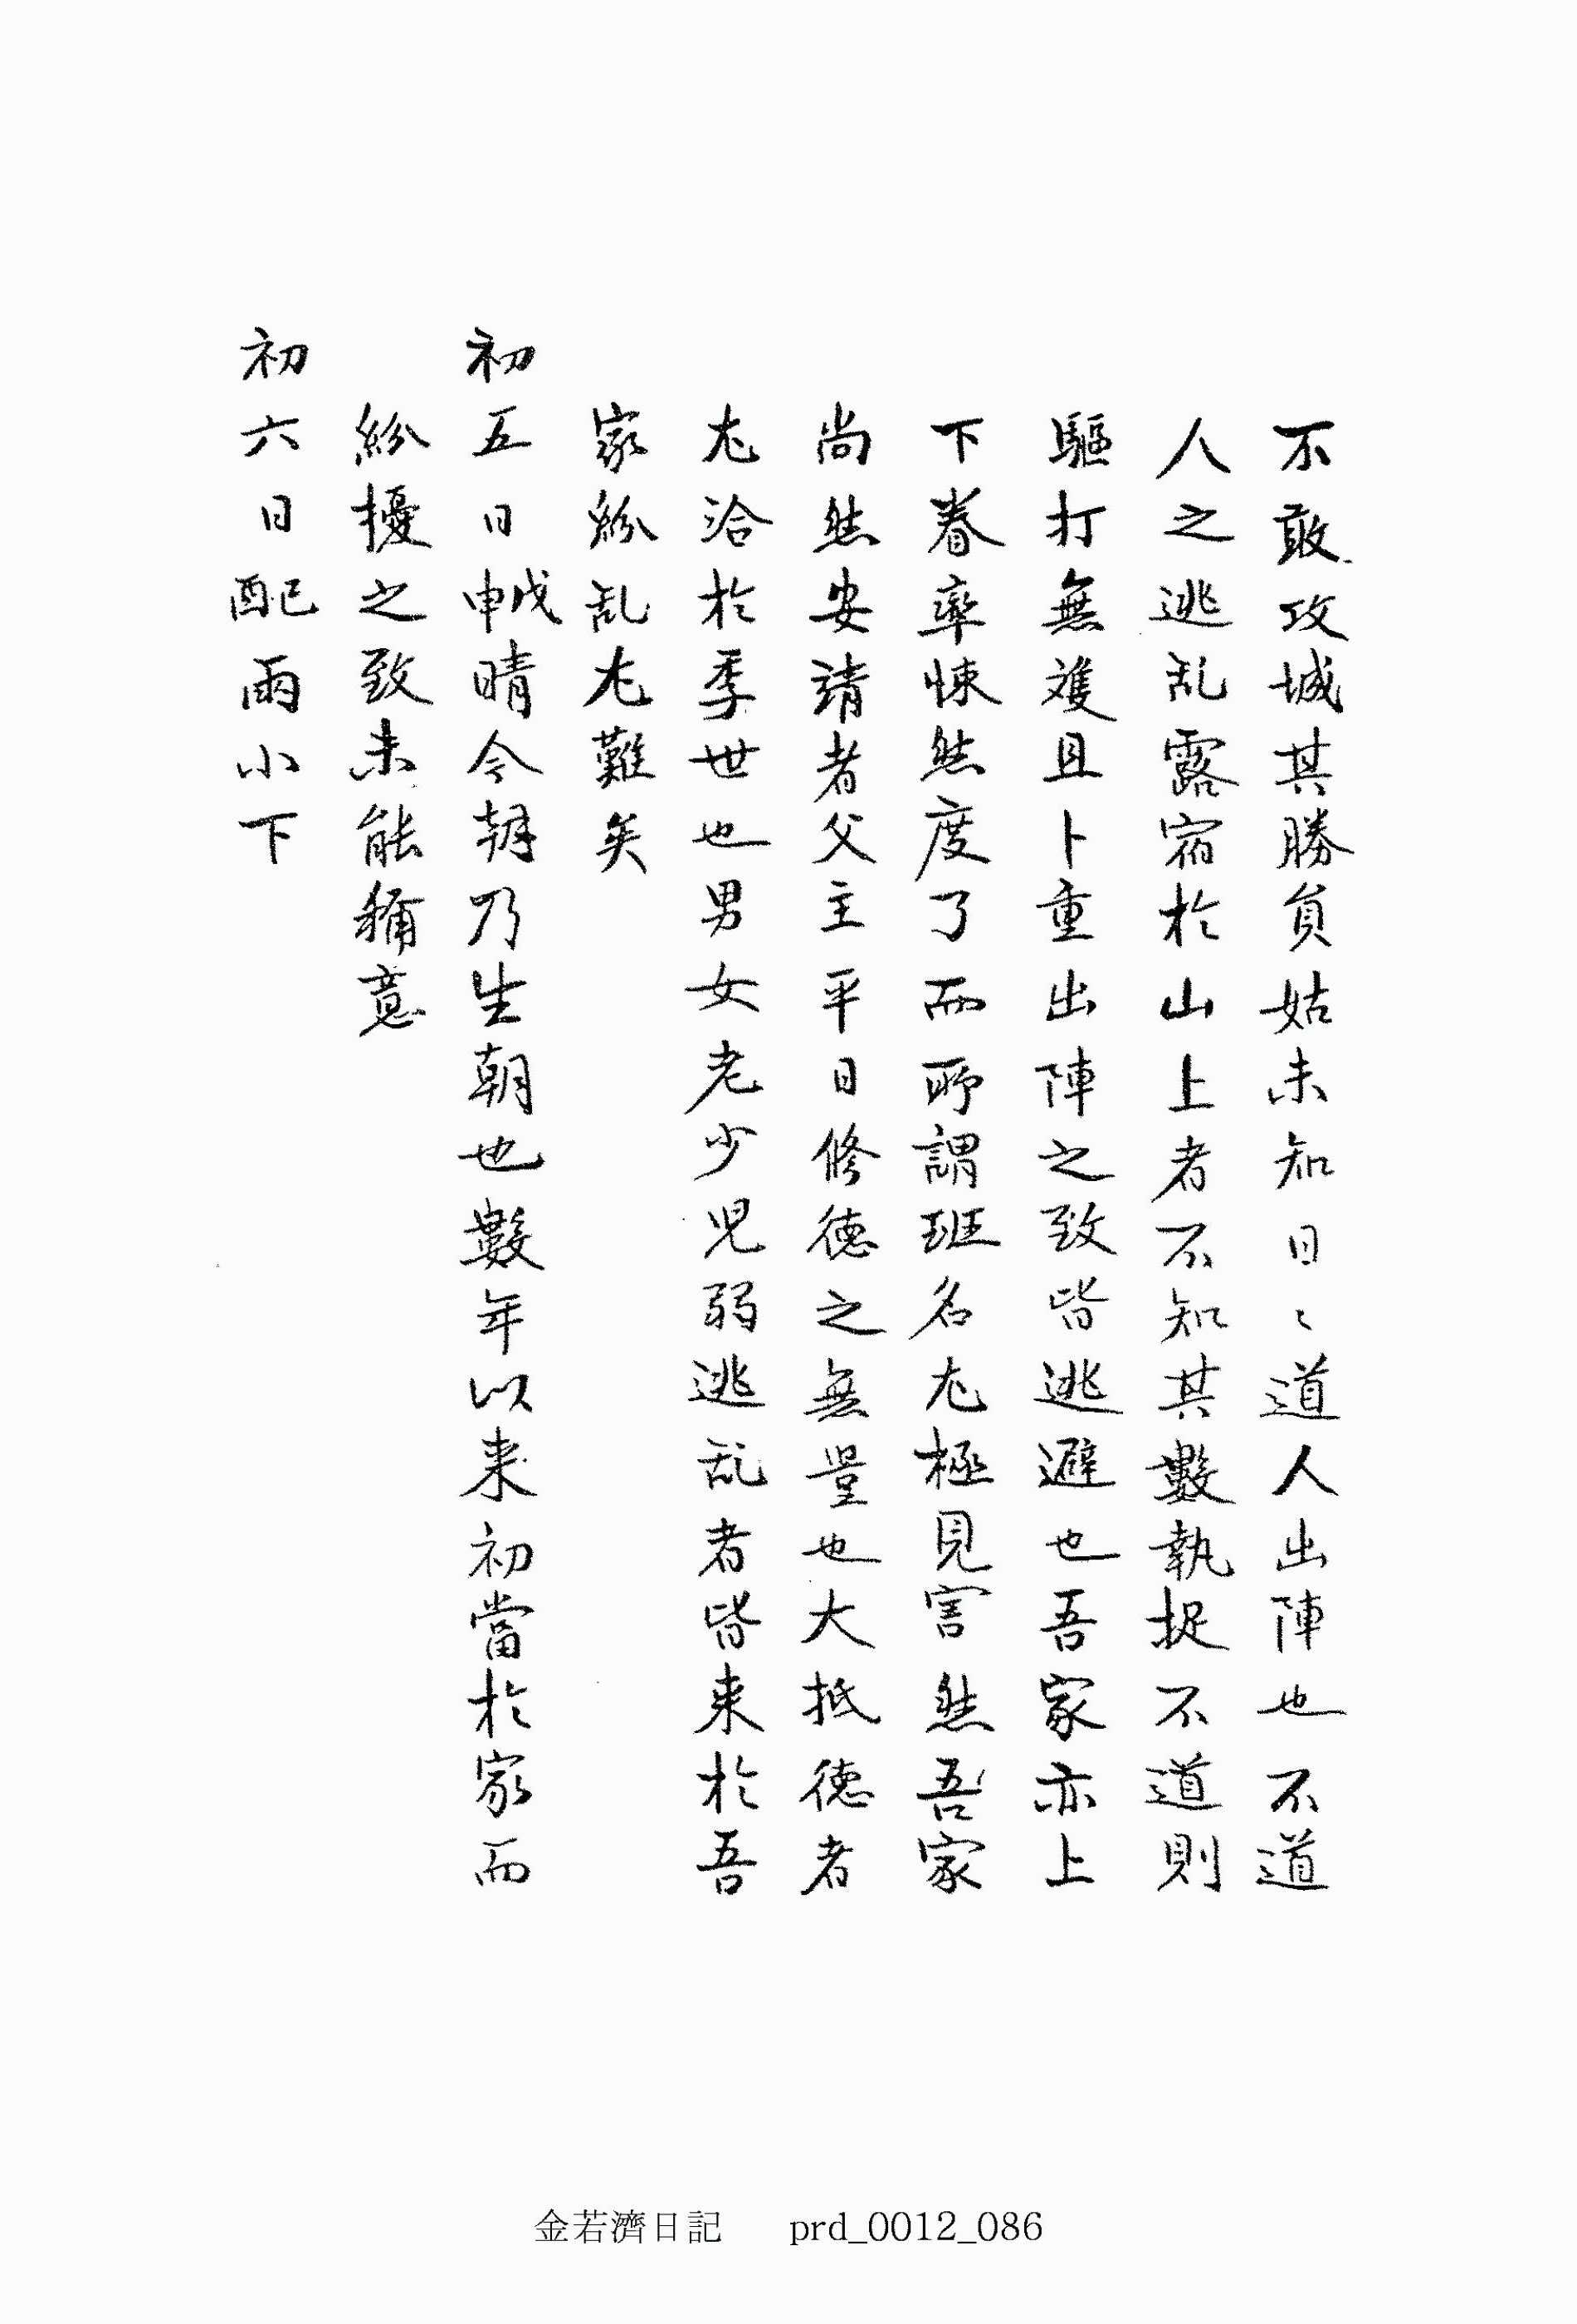 不敢攻城其勝負姑未知日〻道人出陣也不道
人之逃乱露宿於山上者不知其數執捉不道則
驅打無雙且卜重出陣之致皆逃避也吾家亦上
下眷率悚然度了而所謂班名尤極見害然吾家
尚然安靖者父主平日修德之無量也大抵德者
尤洽於季世也男女老少児弱逃乱者皆来於吾
家紛乱尤難矣
初五日戊申晴今朝乃生朝也數年以来初當於家而
紛擾之致未能稱意
初六日己酉雨小下
金若濟日記 prd_0012_086